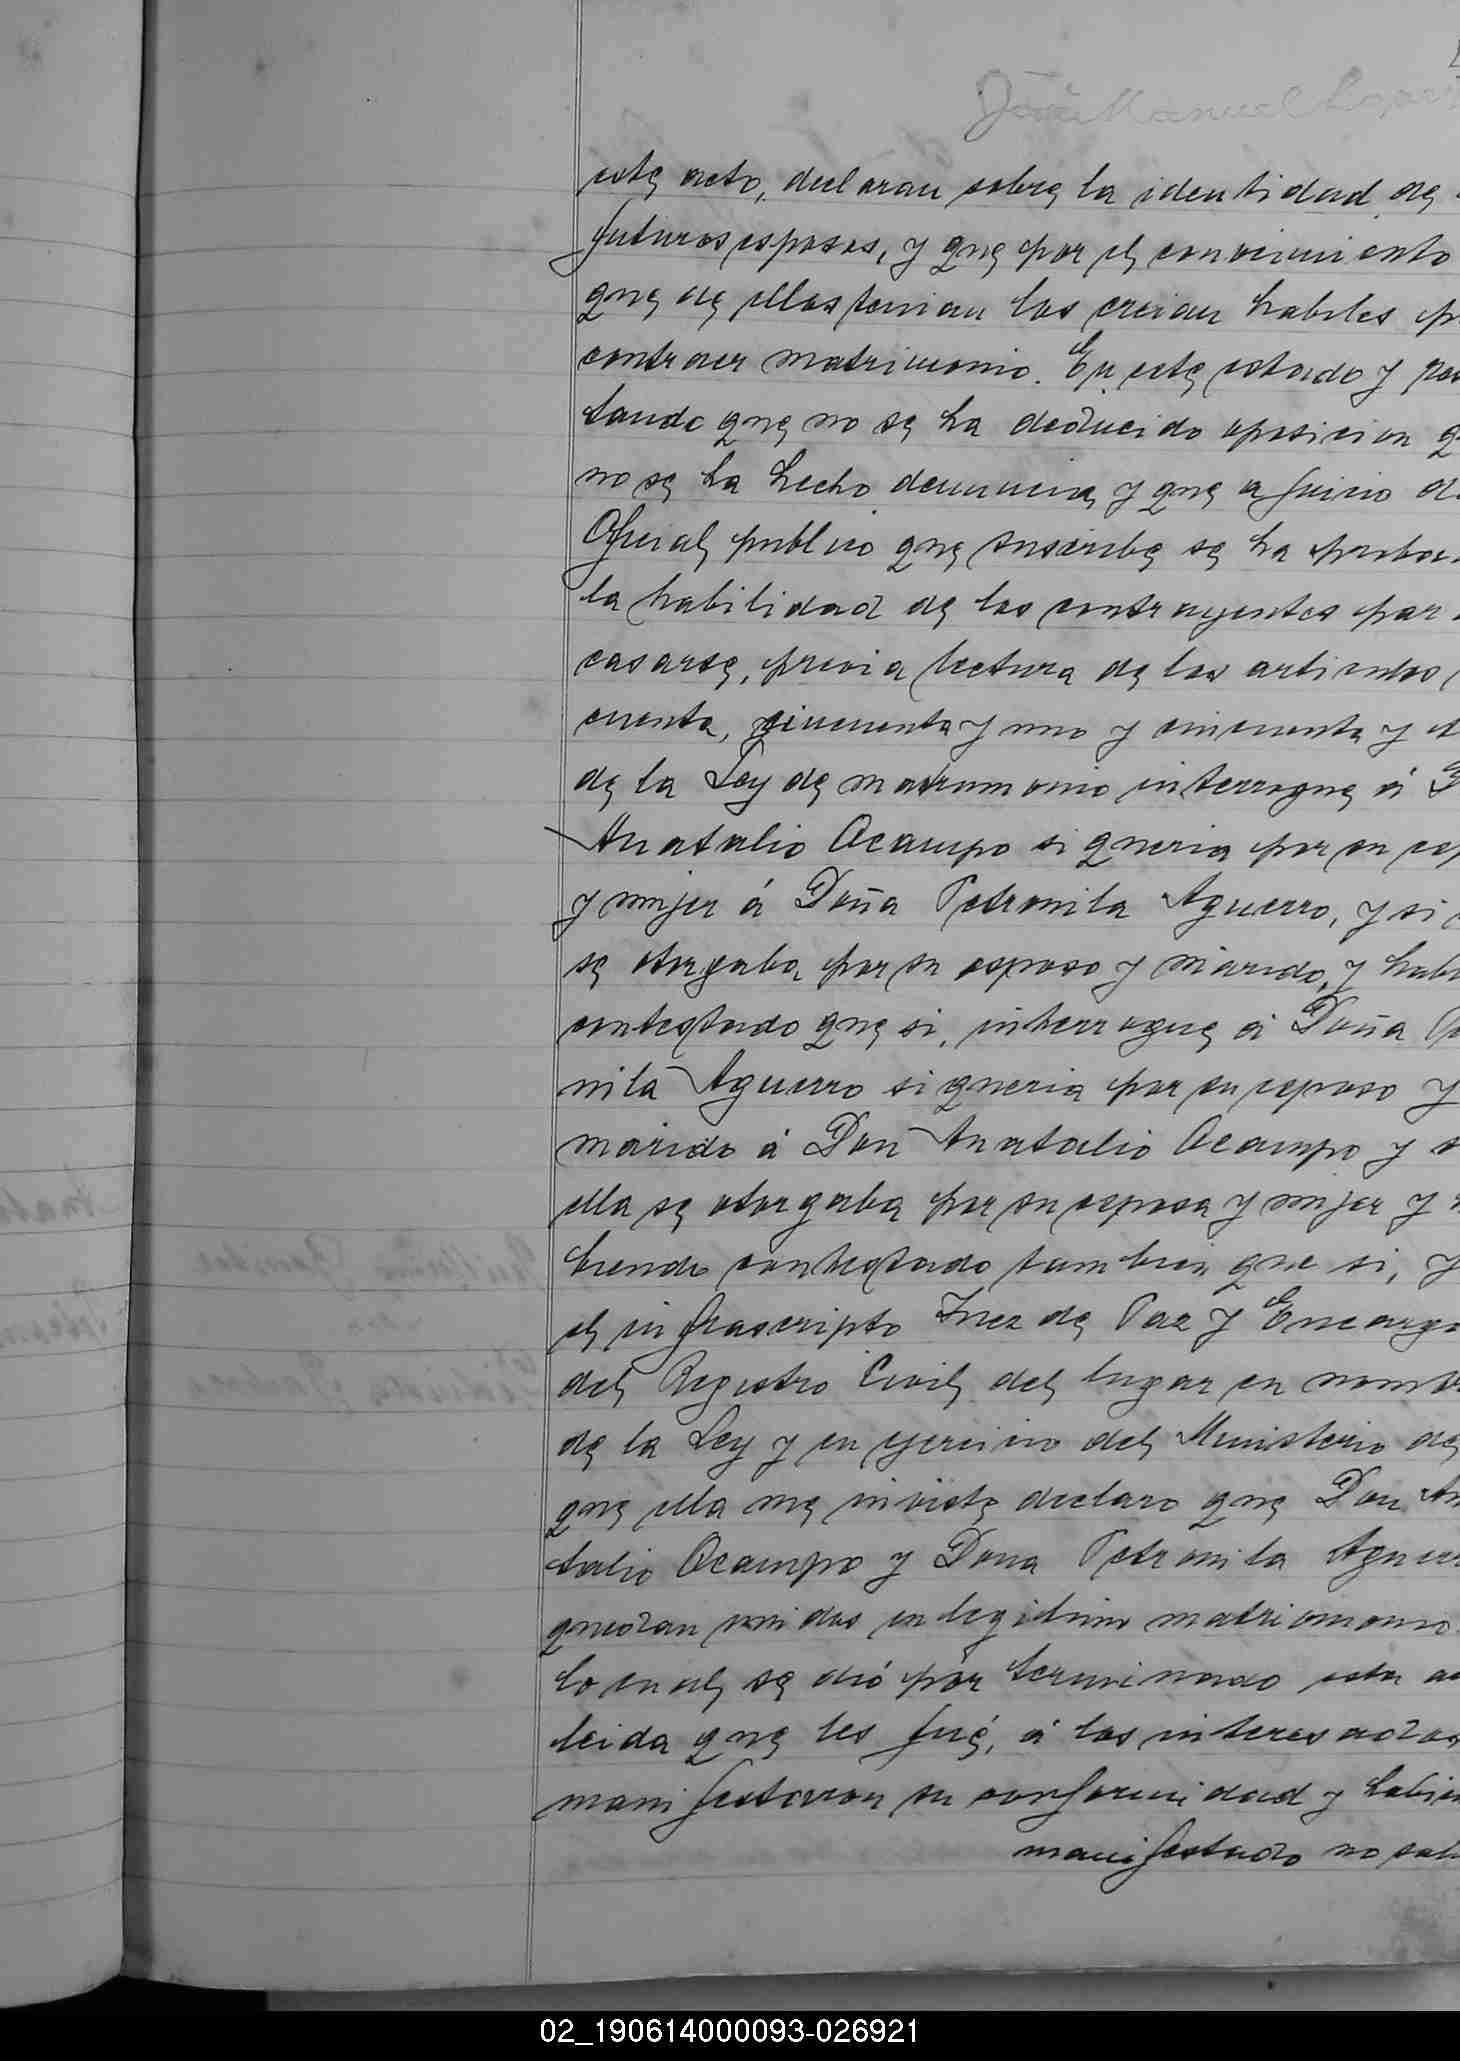 José Manuel
este acto, declaran sobre la identidad de
futuros esposos, y que por el convicimiento
que de ellos tenian los creian habiles p
contraer matrimonio. En este estado y res
tando que no se ha deducido oposicion q
no se ha hecho denuncia y que a juicio d
Oficial publico que suscribe se ha proba
la habilidad de los contrayentes par
casarse, previa lectura de los articulos
cuenta, cincuenta y uno y cincuenta y d
de la Ley de matrimonio interrogue á D
Anatalio Ocampo si queria por su esp
y mujer á Doña Petronila Aguerro, y si
se otorgaba por su esposo y marido, y habi
contestado que si, interrogue á Doña P
nila Aguerro si queria por su esposo y
marido á Don Anatalio Ocampo y s
ella se otorgaba por su esposa y mujer y
biendo contestado tambien que si, y
el infrascripto Juez de Paz y Encarga
del Registro Civil del lugar en nomb
de la Ley y en ejercicio del Ministerio de
que ella me inviste declaro que Don An
talio Ocampo y Dona Petronila Aguerr
quedan unidos en legitimo matrimonio
lo cual se dió por terminado esta ac
leida que les fué, á los interesados
manifestaron su conformidad y habien
manifestado no sab
02_190614000093-026921